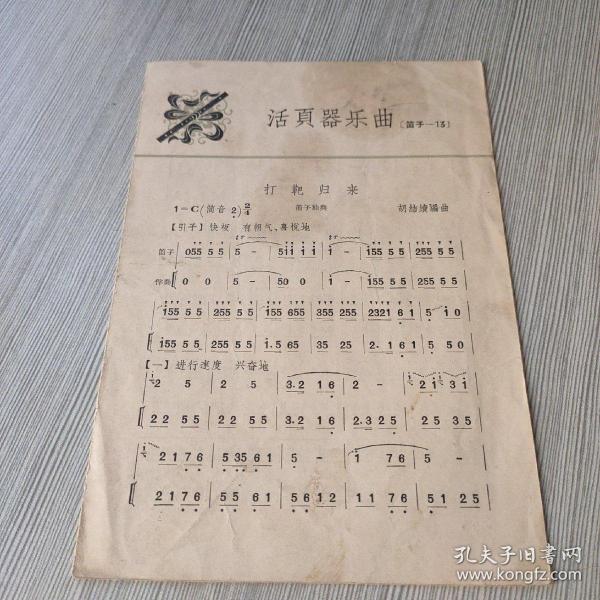 活頁器乐曲〔笛子—13〕
打靶归来
1=C(筒音2)2/4 笛子独奏 胡结续编曲
【引子】快板 有朝气、喜悦地
笛子 055 5 5 | 5 - | 5i i i i | i - | i55 5 5 | 255 5 5
伴奏 0 0 | 5 - | 5 0 0 | i - | 155 5 5 | 255 5 5
i55 5 5 | 255 5 5 | i55 655 | 355 255 | 2321 6 1 | 5 i 0
155 5 5 | 255 5 5 | i. 5 65 | 35 25 | 2. 1 6 1 | 5 5 0
【一】进行速度 兴奋地
2 5 | 2 5 | 3.2 1 6 | 2 - | 2 i 3 i
2 2 5 5 | 2 2 5 5 | 3.2 1 6 | 2.3 2 5 | 2 5 3 5
2 1 7 6 | 5 35 6 1 | 5 - | 1 7 6 | 5 -
2 1 7 6 | 5 5 6 1 | 5 6 1 2 | 1 1 7 6 | 5 1 2 5
孔夫子旧书网
www.kongfz.com